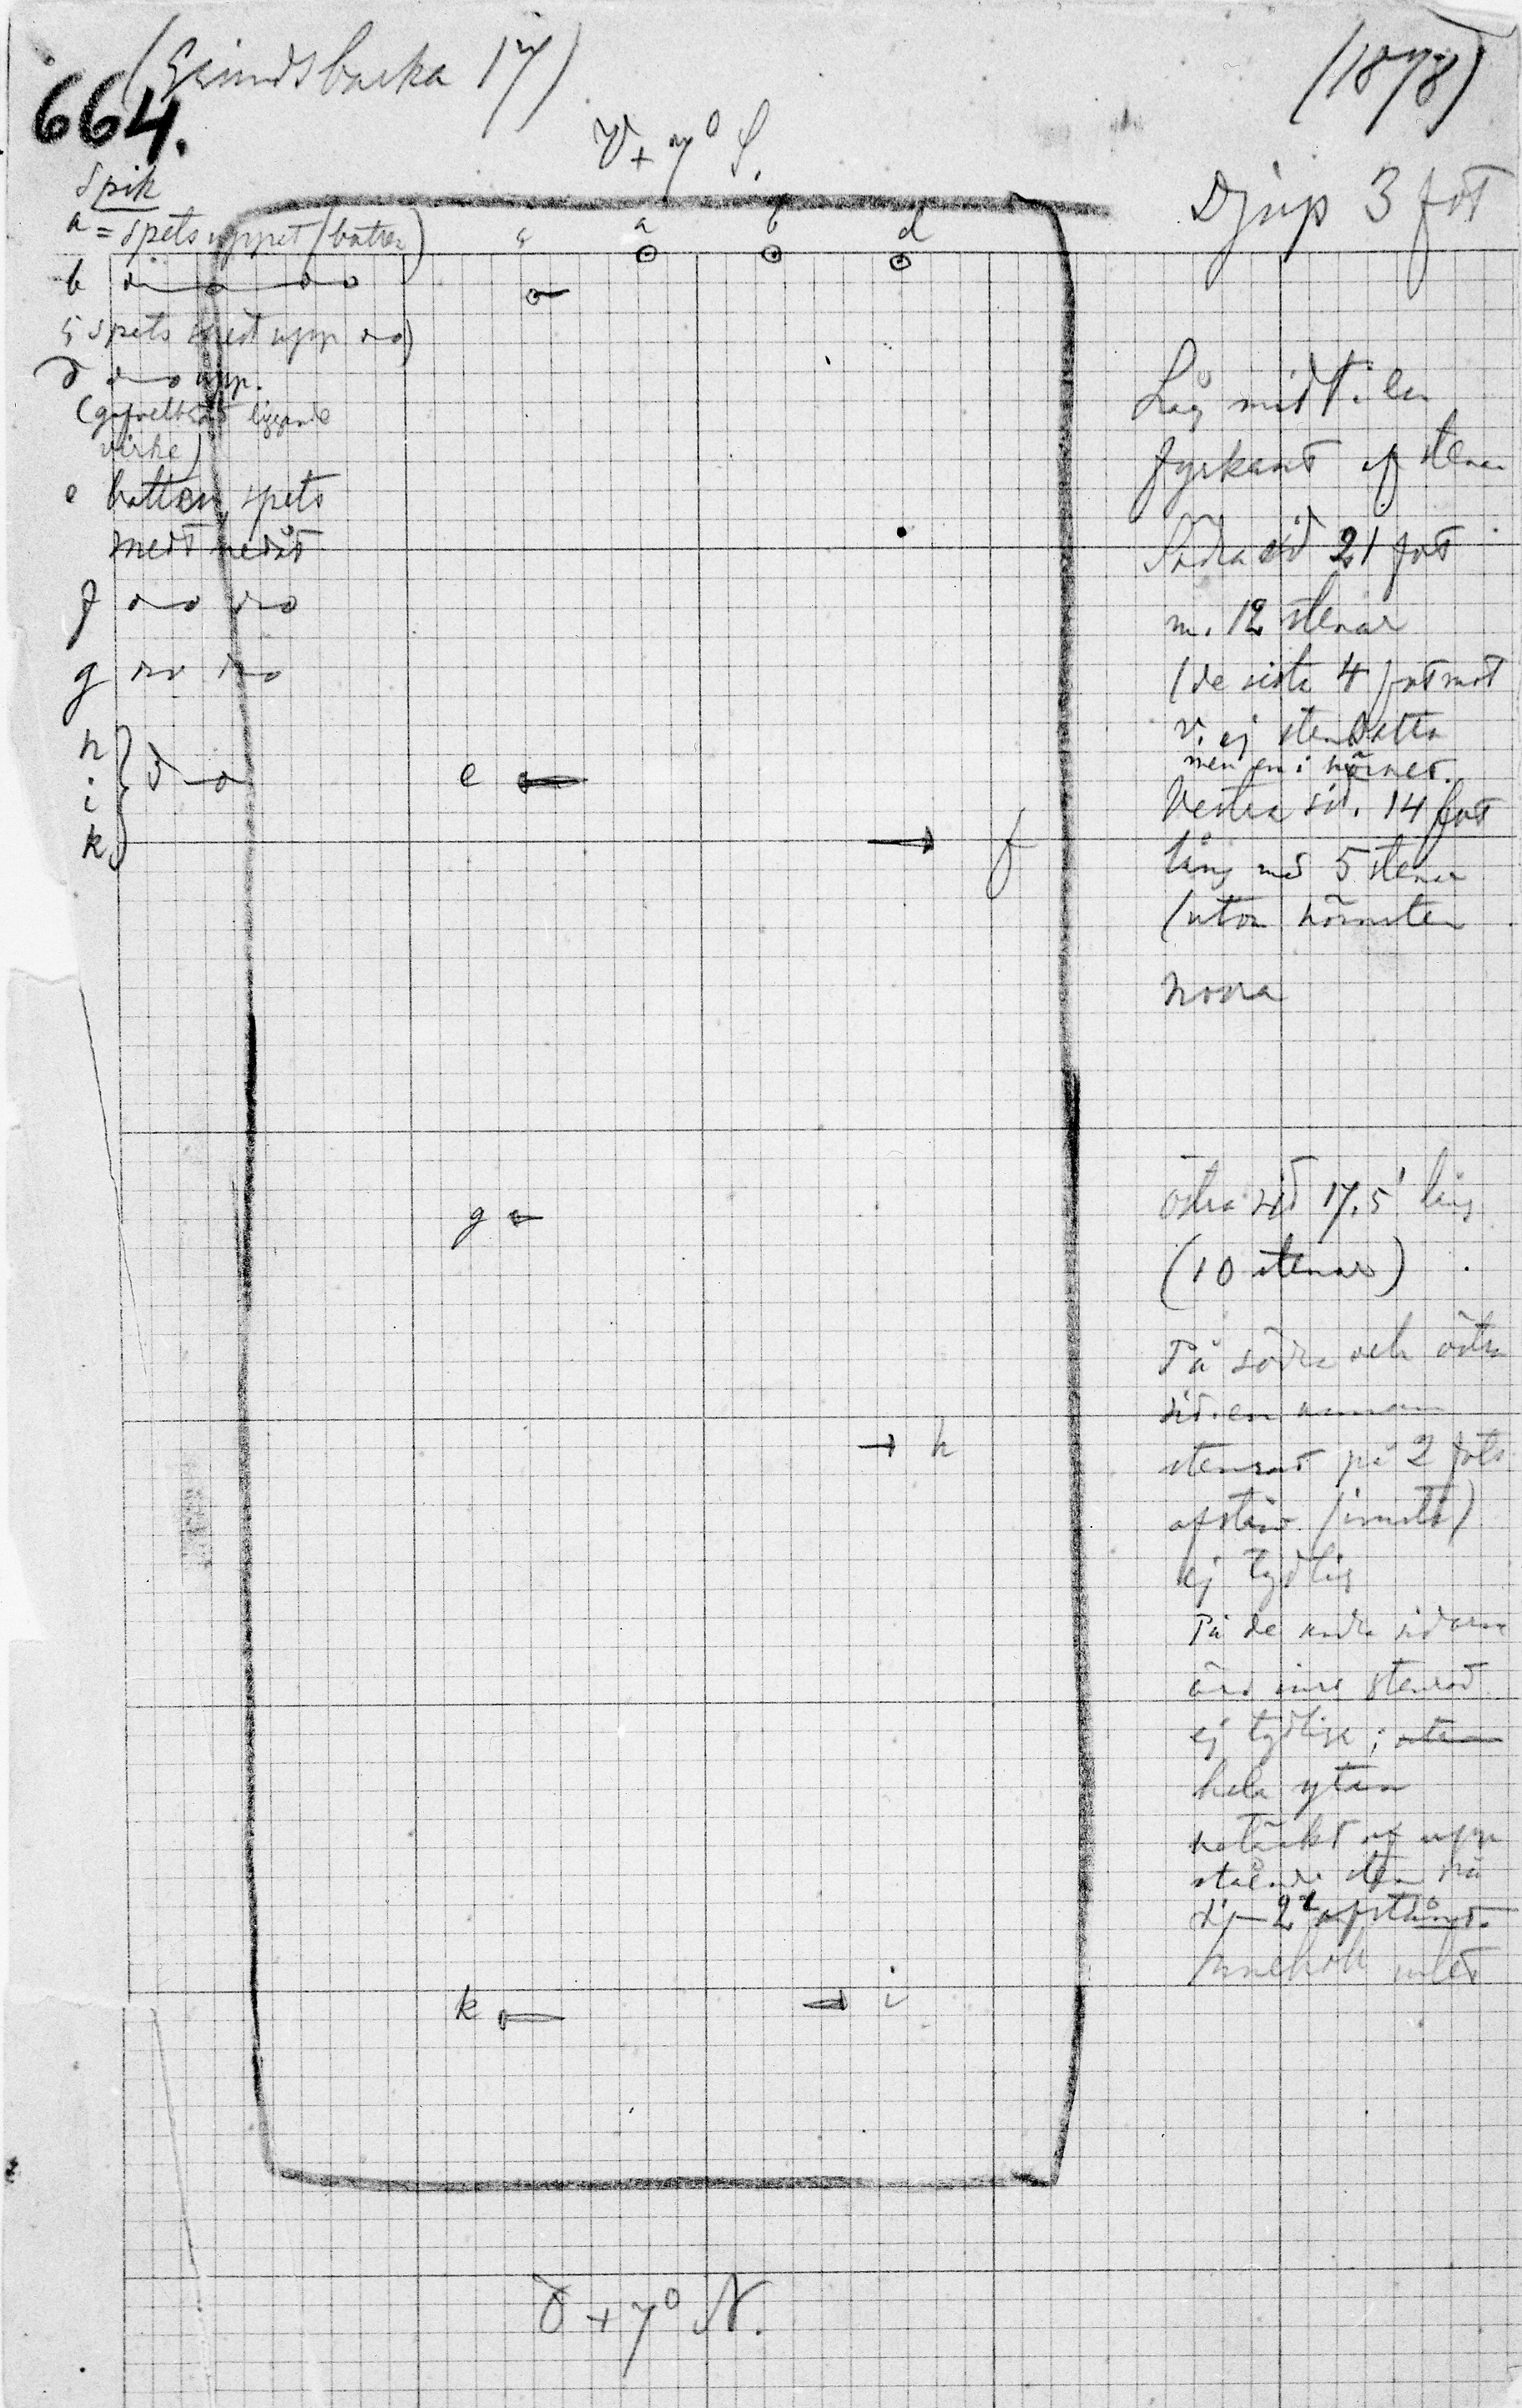 (Grindsbacka 17)
(1878)
664.
V + 7° S.
Djup 3 fot
Spik
a = spets uppåt (botten)
b
c spets snedt upp
d upp.
liggande
virke)
e botten, spets
snedt nedåt
f
g
h
i
k
c a b d
e
f
g
h
k i
Låg midt i en
fyrkant af stenar
Södra sid 21 fot
m. 12 stenar
(de sista 4 fot mot
V. ej stensatta
men en i hörnet.
Vestra sid. 14 fot
lång med 5 stenar
(utom hörnsten
norra
östra sid 17,5' lång
(10 stenar)
På södra och östra
sid. en annan
stenrad på 2 fots
afstånd (innått)
ej tydlig
På de andra sidorna
inre stenrad
ej tydliga; utan
hela ytan
betäckt af upp
stående sten på
1'–2' afstånd.
Innehöll intet
Ö + 7° N.